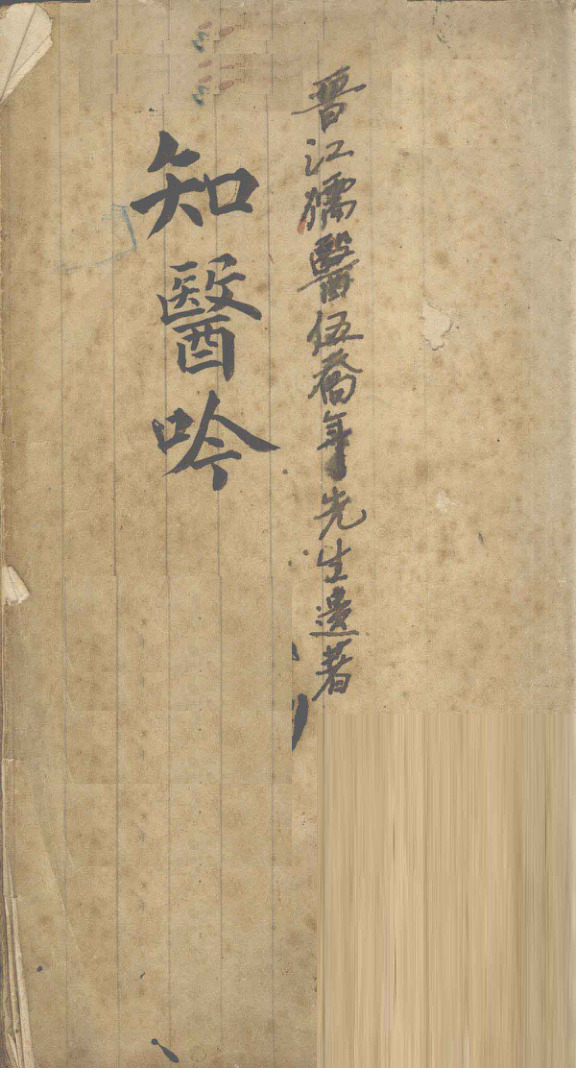 晉江獳醫伍喬年先生遺著
知醫吟